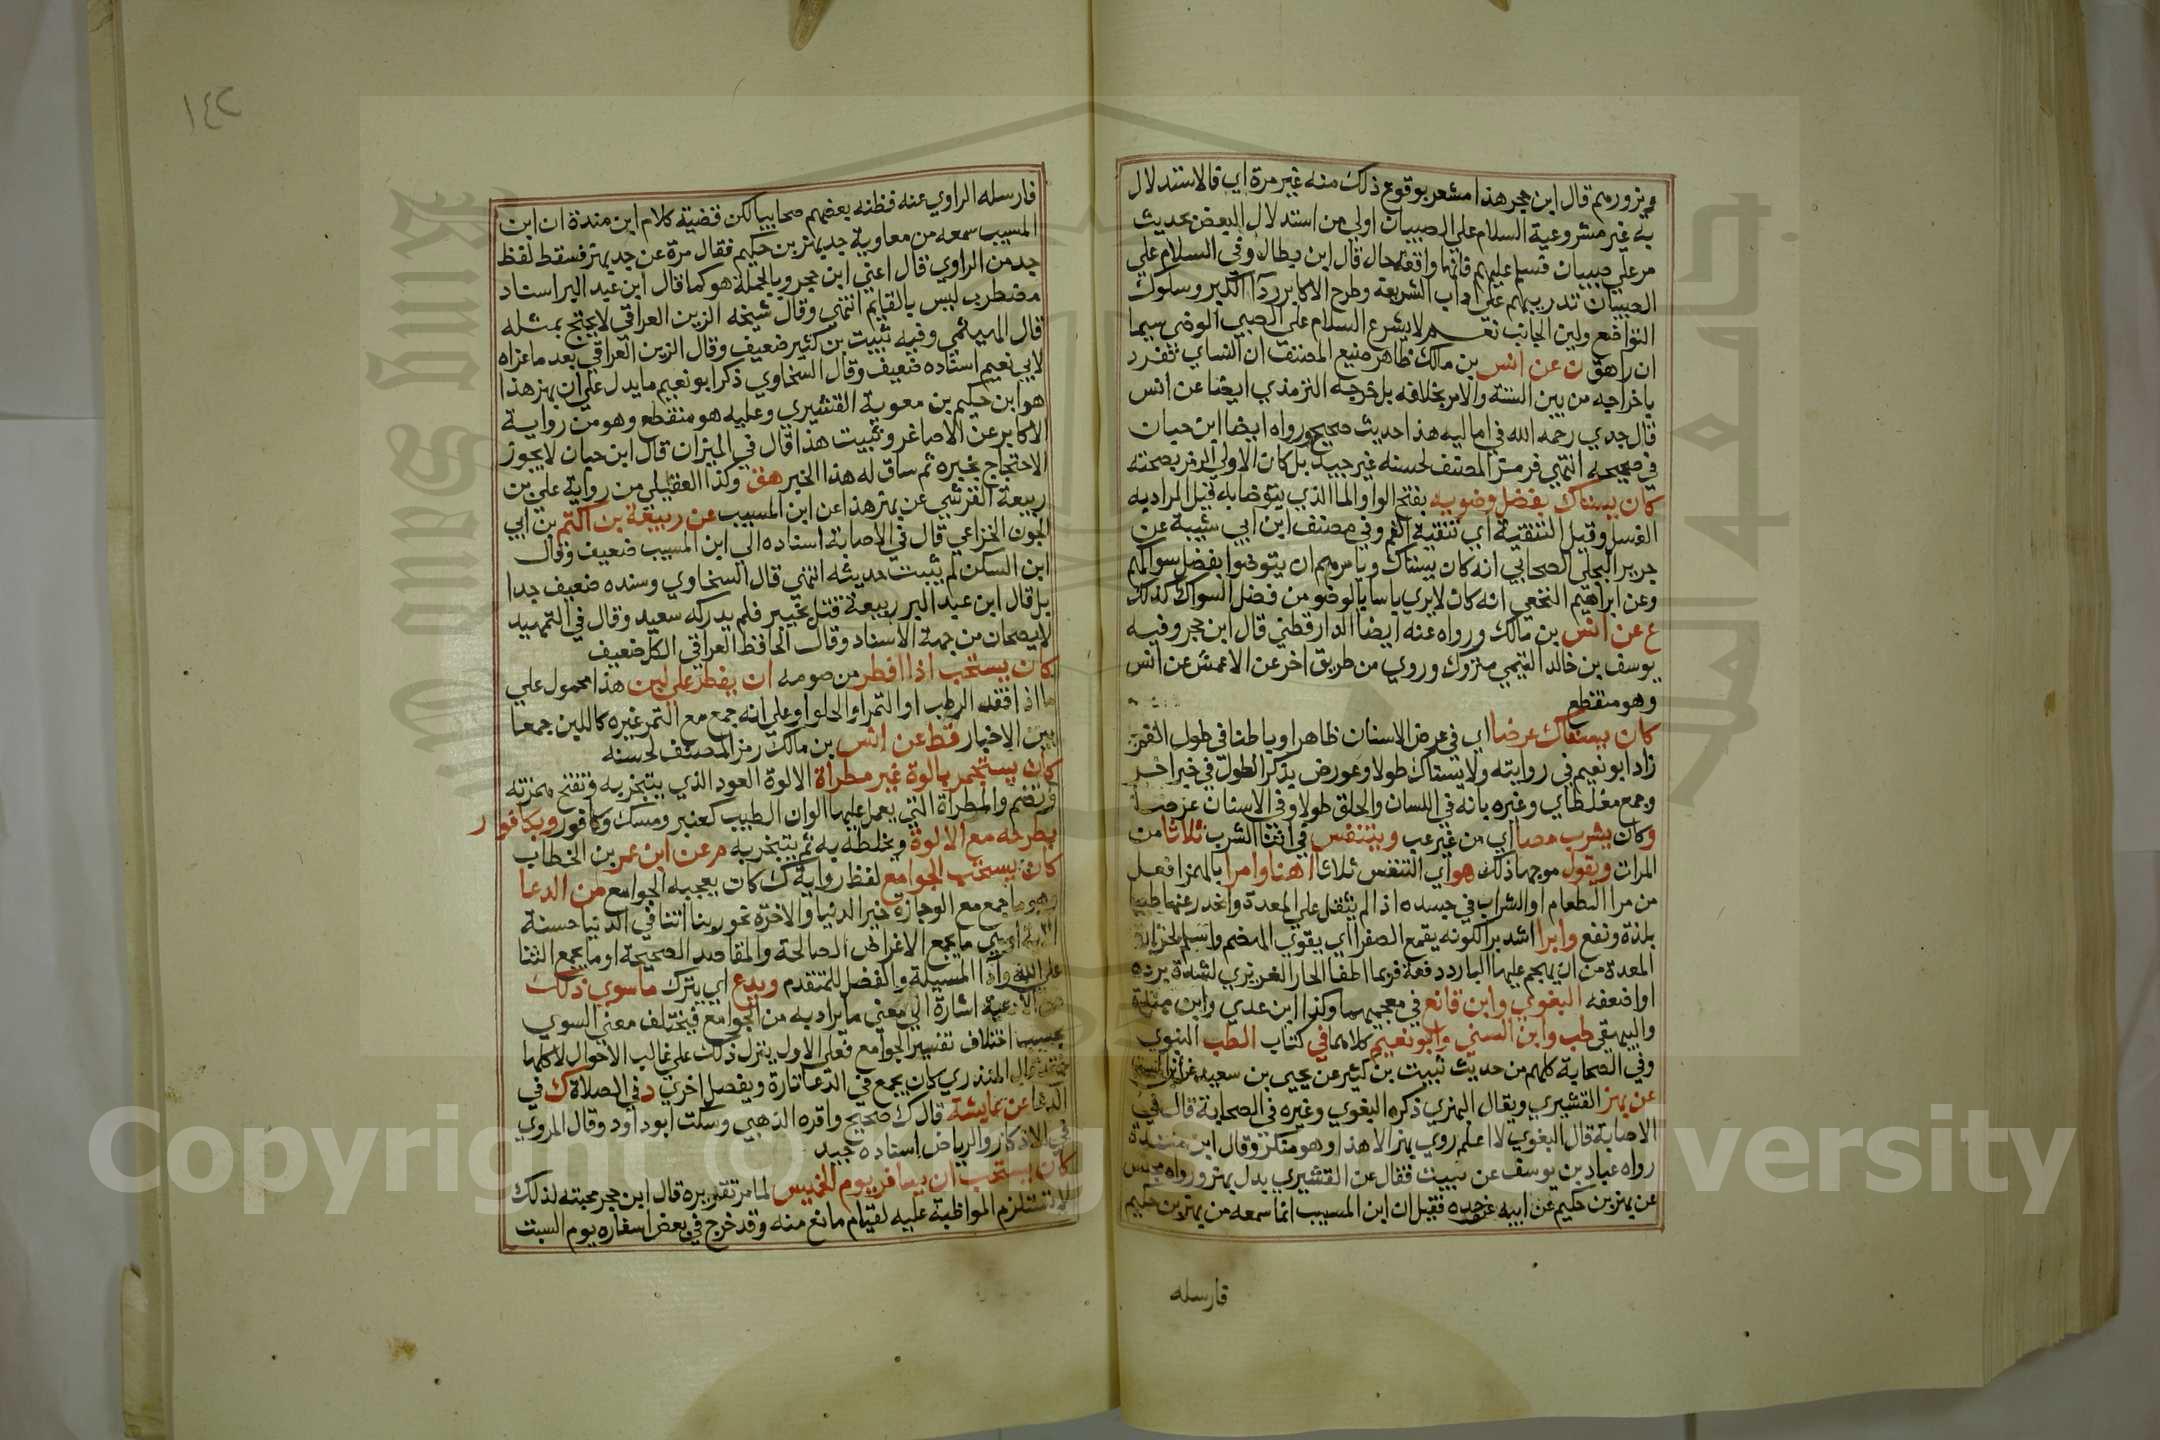 ويزورهم قال ابن حجر هذا مشعر بوقوع ذلك منه غير مرة اي فالاستدلال
به غير مشروعية السلام علي الصبيان اولي من استدلال البعض بحديث
مر علي صبيان فسلم عليهم فانها واقعة حال قال ابن بطال وفي السلام علي
الصبيان تدريبهم علي اداب الشريعة وطرح الاكابر ردآ الكبر وسلوك
التواضع ولين الجانب نعم لا يشرع السلام علي الصبي الوضي سيما
ان راهق ن عن انس بن مالك ظاهر صنيع المصنف ان النساي تفرد
باخراجه من بين الستة والامر بخلافه بل خرجه الترمذي ايضا عن انس
قال جدي رحمه الله في اماليه هذا حديث صحيح ورواه ايضا ابن حبان
في صحيحه انتهي فرمز المصنف لحسنه غير جيد بل كان الاولي الرمز بصحته
كان يستاك بفضل وضويه بفتح الواو الما الذي يتوضا به قيل المراد به
الغسل وقيل التنقية اي تنقية الفم وفي مصنف ابن ابي شيبة عن
جرير البجلي الصحابي انه كان يستاك ويامرهم ان يتوضوا بفضل سواكهم
وعن ابراهيم النخعي انه كان لا يري باسا بالوضو من فضل السواك كذلك
ع عن انس بن مالك ورواه عنه ايضا الدارقطني قال ابن حجر وفيه
يوسف بن خالد التيمي متروك وروي من طريق اخر عن الاعمش عن انس
وهو منقطع
كان يستاك عرضا اي في عرض الاسنان ظاهرا وباطنا في طول الفم
زاد ابو نعيم في روايته ولا يستاك طولا وعورض بذكر الطول في خبر اخر
وجمع مغلطاي وغيره بانه في اللسان والحلق طولا وفي الاسنان عرضا
وكان يشرب مصا اي من غير عب ويتنفس في اثنا الشرب ثلاثا من
المرات ويقول موجها ذلك هو اي التنفس ثلاثا اهنا وامرا بالهمز افعل
من مرا الطعام او الشراب في جسده اذا لم يثقل علي المعدة وانحدر عنها طيبا
بلذة ونفع وابرا اشد برا لكونه يقمع الصفرا اي يقوي الهضم واسلم لحرارة
المعدة من ان يهجم عليها البارد دفعة فربما اطفا الحار الغريزي لشدة برده
او اضعفه البغوي وابن قانع في معجميهما وكذا ابن عدي وابن مندة
والبيهقي طب وابن السني وابو نعيم كلاهما في كتاب الطب النبوي
وفي الصحابة كلهم من حديث ثبيت بن كثير عن يحيي بن سعيد عن ابن المسيب
عن بهز القشيري ويقال البهزي ذكره البغوي وغيره في الصحابة قال في
الاصابة قال البغوي لا اعلم روي بهز الا هذا وهو منكر وقال ابن مندة
رواه عباد بن يوسف عن ثبيت فقال عن القشيري بدل بهز ورواه مخيس
عن بهز بن حكيم عن ابيه عن جده فقيل ان ابن المسيب انما سمعه من بهز بن حكيم
فارسله
١٤٢
فارسله الراوي عنه فظنه بعضهم صحابيا لكن قضية كلام ابن مندة ان ابن
المسيب سمعه من معاوية جد بهز بن حكيم فقال مرة عن جد بهز فسقط لفظ
جد من الراوي قال اعني ابن حجر وبالجملة هو كما قال ابن عبد البر اسناد
مضطرب ليس بالقايم انتهي وقال شيخه الزين العراقي لا يحتج بمثله
قال الهيثمي وفيه ثبيت بن كثير ضعيف وقال الزين العراقي بعد ما عزاه
لابي نعيم اسناده ضعيف وقال السخاوي ذكر ابو نعيم ما يدل علي ان بهز هذا
هو ابن حكيم بن معوية القشيري وعليه هو منقطع وهو من رواية
الاكابر عن الاصاغر وثبيت هذا قال في الميزان قال ابن حبان لا يجوز
الاحتجاج بخبره ثم ساق له هذا الخبر هق وكذا العقيلي من رواية علي بن
ربيعة القرشي عن بهز هذا عن ابن المسيب عن ربيعة بن اكثم بن ابي
الجون الخزاعي قال في الاصابة اسناده الي ابن المسيب ضعيف وقال
ابن السكن لم يثبت حديثه انتهي قال السخاوي وسنده ضعيف جدا
بل قال ابن عبد البر ربيعة قتل بخيبر فلم يدركه سعيد وقال في التمهيد
لا يصحان من جهة الاسناد وقال الحافظ العراقي الكل ضعيف
كان يستحب اذا افطر من صومه ان يفطر علي لبن هذا محمول علي
ما اذا فقد الرطب او التمر او الحلو او علي انه جمع مع التمر غيره كاللبن جمعا
بين الاخبار قط عن انس بن مالك رمز المصنف لحسنه
كان يستجمر بالوة غير مطراة الالوة العود الذي يتبخر به وتفتح همزته
وتضم والمطراة التي يعمل عليها الوان الطيب كعنبر ومسك وكافور وبكافور
يطرحه مع الالوة ويخلطه به ثم يتبخر به م عن ابن عمر بن الخطاب
كان يستحب الجوامع لفظ رواية ك كان يعجبه الجوامع من الدعا
وهو ما جمع مع الوجازة خير الدنيا والاخرة نحو ربنا اتنا في الدنيا حسنة
الاية او هي ما يجمع الاغراض الصالحة والمقاصد الصحيحة او ما يجمع الثنا
علي الله وآدا المسيلة والفضل للمتقدم ويدع اي يترك ما سوي ذلك
من الادعية اشارة الي معني ما يراد به من الجوامع فيختلف معني السوي
بحسب اختلاف تفسير الجوامع فعلي الاول ينزل ذلك علي غالب الاحوال لا كلها
فقد قال المنذري كان يجمع في الدعا تارة ويفصل اخري د في الصلاة ك في
الدعا عن عايشة قال ك صحيح واقره الذهبي وسكت ابو داود وقال النووي
في الاذكار والرياض اسناده جيد
كان يستحب ان يسافر يوم الخميس لما مر تقريره قال ابن حجر محبته لذلك
لا تستلزم المواظبة عليه لقيام مانع منه وقد خرج في بعض اسفاره يوم السبت